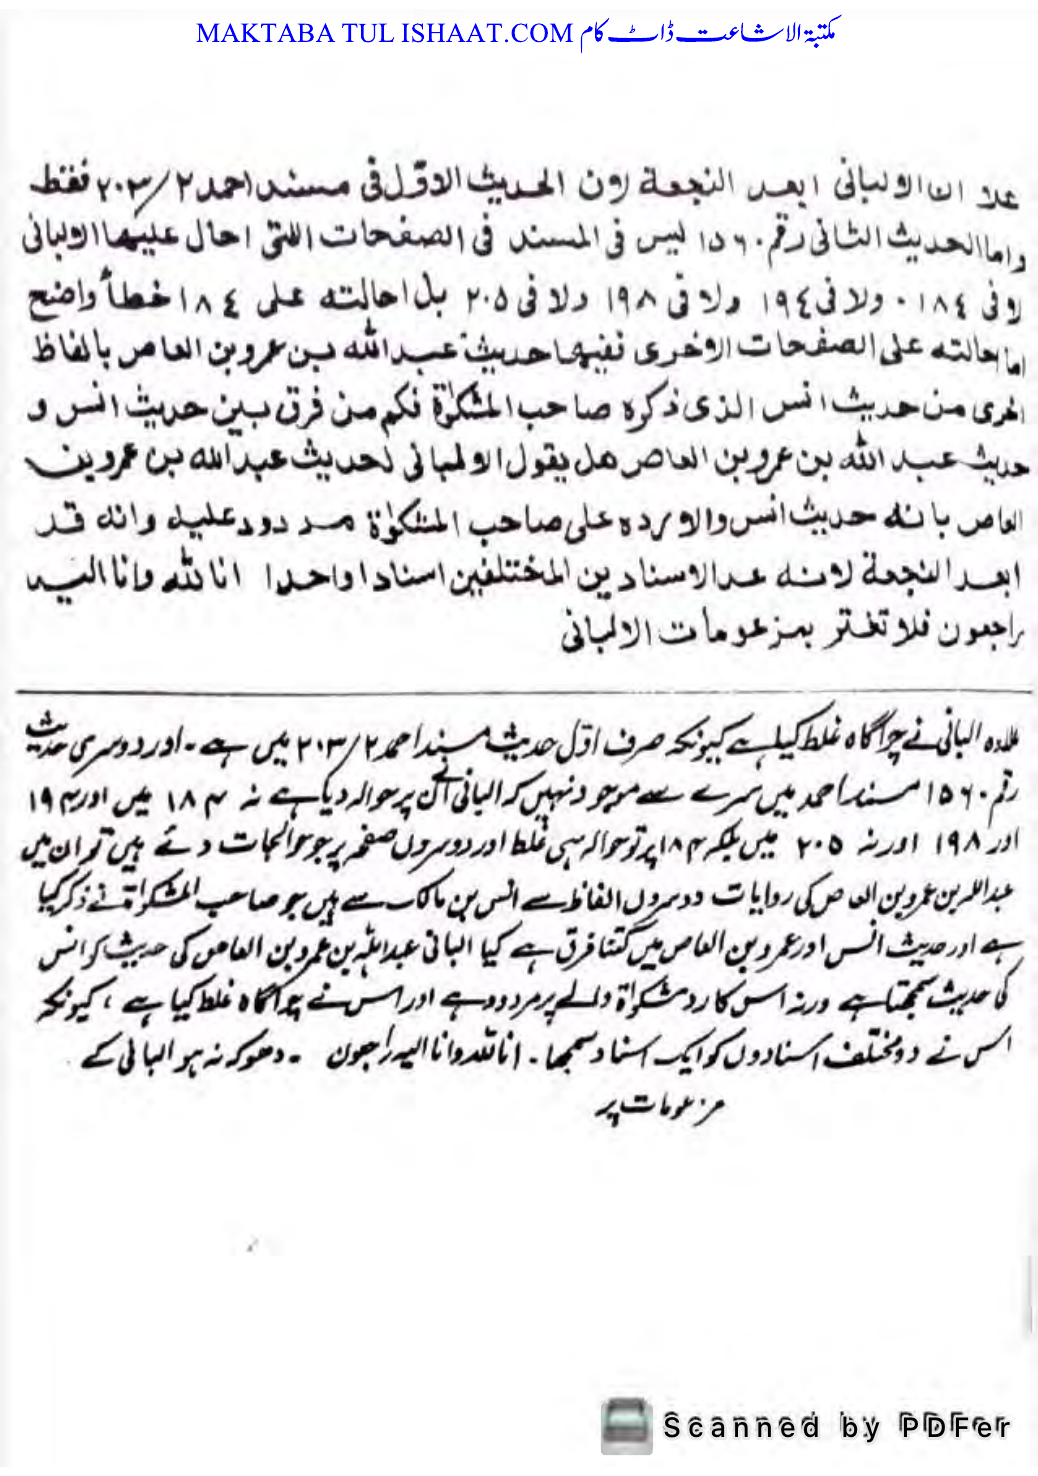 MAKTABA TUL ISHAAT.COM مکتبۃ الاشاعت ڈاٹ کام
علا ان الالبانی ابعد النجعة لان الحدیث الاوّل فی مسند احمد ۲/۲۰۳ فقط
واما الحدیث الثانی رقم ۱۵۶۰ لیس فی المسند فی الصفحات اللتی احال علیها الالبانی
لا فی ۱۸٤ ۰ ولا فی ۱۹٤ ولا فی ۱۹۸ ولا فی ۲۰۵ بل احالته علی ۱۸٤ خطأ واضح
اما احالته علی الصفحات الاخری ففیها حدیث عبد الله بن عمرو بن العاص بالفاظ
اخری من حدیث انس الذی ذکره صاحب المشکوٰة فکم من فرق بین حدیث انس و
حدیث عبد الله بن عمرو بن العاص هل یقول الالبانی لحدیث عبد الله بن عمرو بن
العاص بانه حدیث انس والا رده علی صاحب المشکوٰة مردود علیه وانه قد
ابعد النجعة لانه عد الاسنادین المختلفین اسنادا واحدا انا لله وانا الیه
راجعون فلا تغتر بمزعومات الالبانی
علاوہ البانی نے چراگاہ غلط کیا ہے کیونکہ صرف اوّل حدیث مسند احمد ۲/۲۰۳ میں ہے ۔ اور دوسری حدیث
رقم ۱۵۶۰ مسند احمد میں سرے سے موجود نہیں کہ البانی نے اس پر حوالہ دیا ہے نہ ۱۸۴ میں اور ۱۹۴
اور ۱۹۸ اور نہ ۲۰۵ میں بلکہ ۱۸۴ پر تو حوالہ ہی غلط اور دوسروں صفحہ پر جو حوالجات دئے ہیں تو ان میں
عبداللہ بن عمرو بن العاص کی روایات دوسروں الفاظ سے انس بن مالک سے ہیں جو صاحب المشکواة نے ذکر کیا
ہے اور حدیث انس اور عمرو بن العاص میں کتنا فرق ہے کیا البانی عبداللہ بن عمرو بن العاص کی حدیث کو انس
کی حدیث سمجھتا ہے ورنہ اس کا رد مشکواة والے پر مردود ہے اور اس نے چراگاہ غلط کیا ہے ، کیونکہ
اس نے دو مختلف اسنادوں کو ایک اسناد سمجھا ۔ انا للہ وانا الیہ راجعون ۔ دھوکہ نہ ہو البانی کے
مزعومات پر
Scanned by PDFer